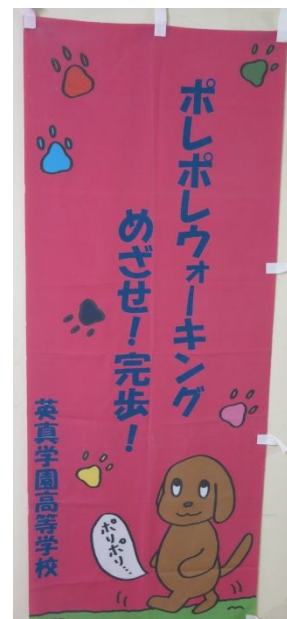 ポレポレウォーキング
めざせ！完歩！
英真学園高等学校
ポリポリ…